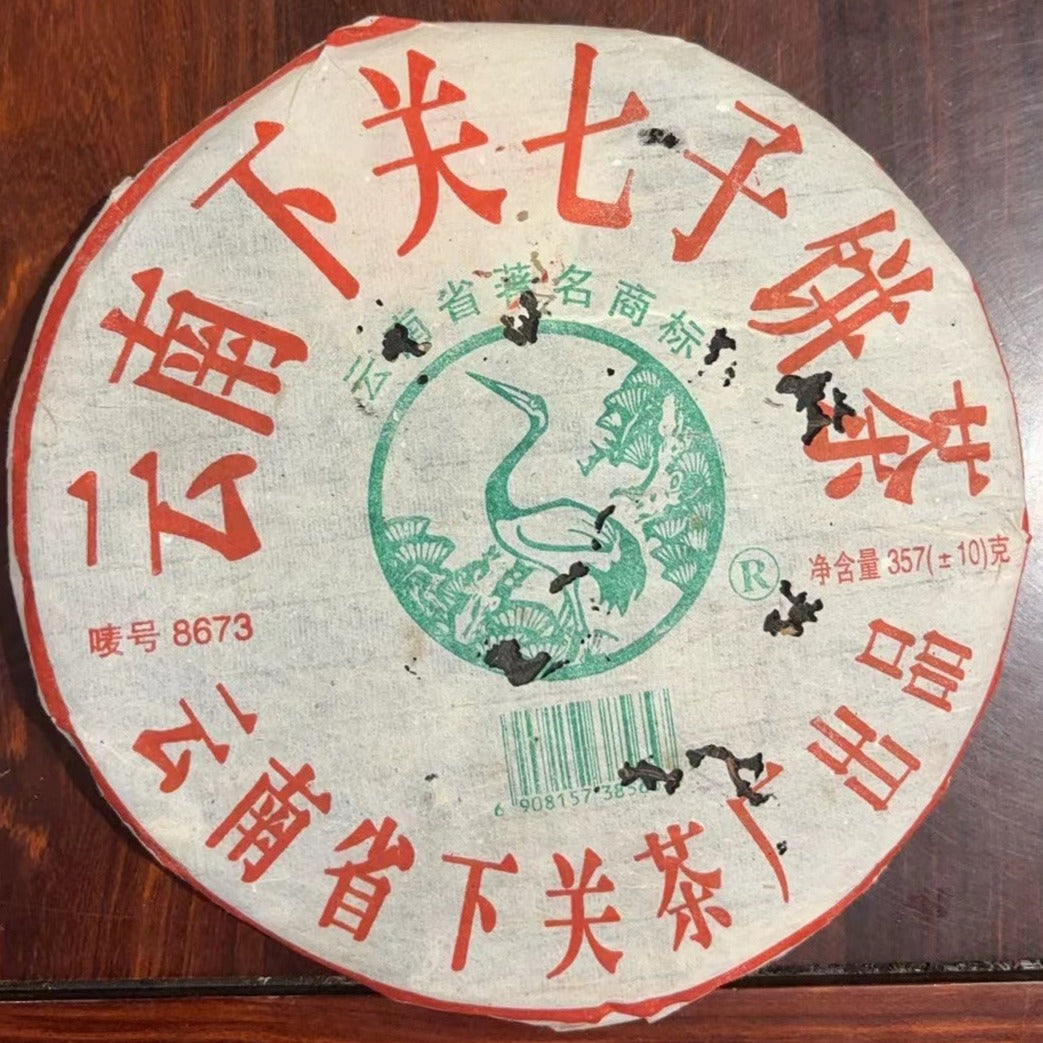 云南下关七子饼茶
云南省著名商标
®
净含量 357(±10)克
唛号 8673
6 908157 385
云南省下关茶厂出品